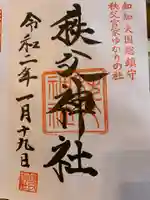 知知夫国総鎮守
秩父宮家ゆかりの社
秩父神社
令和二年一月十九日